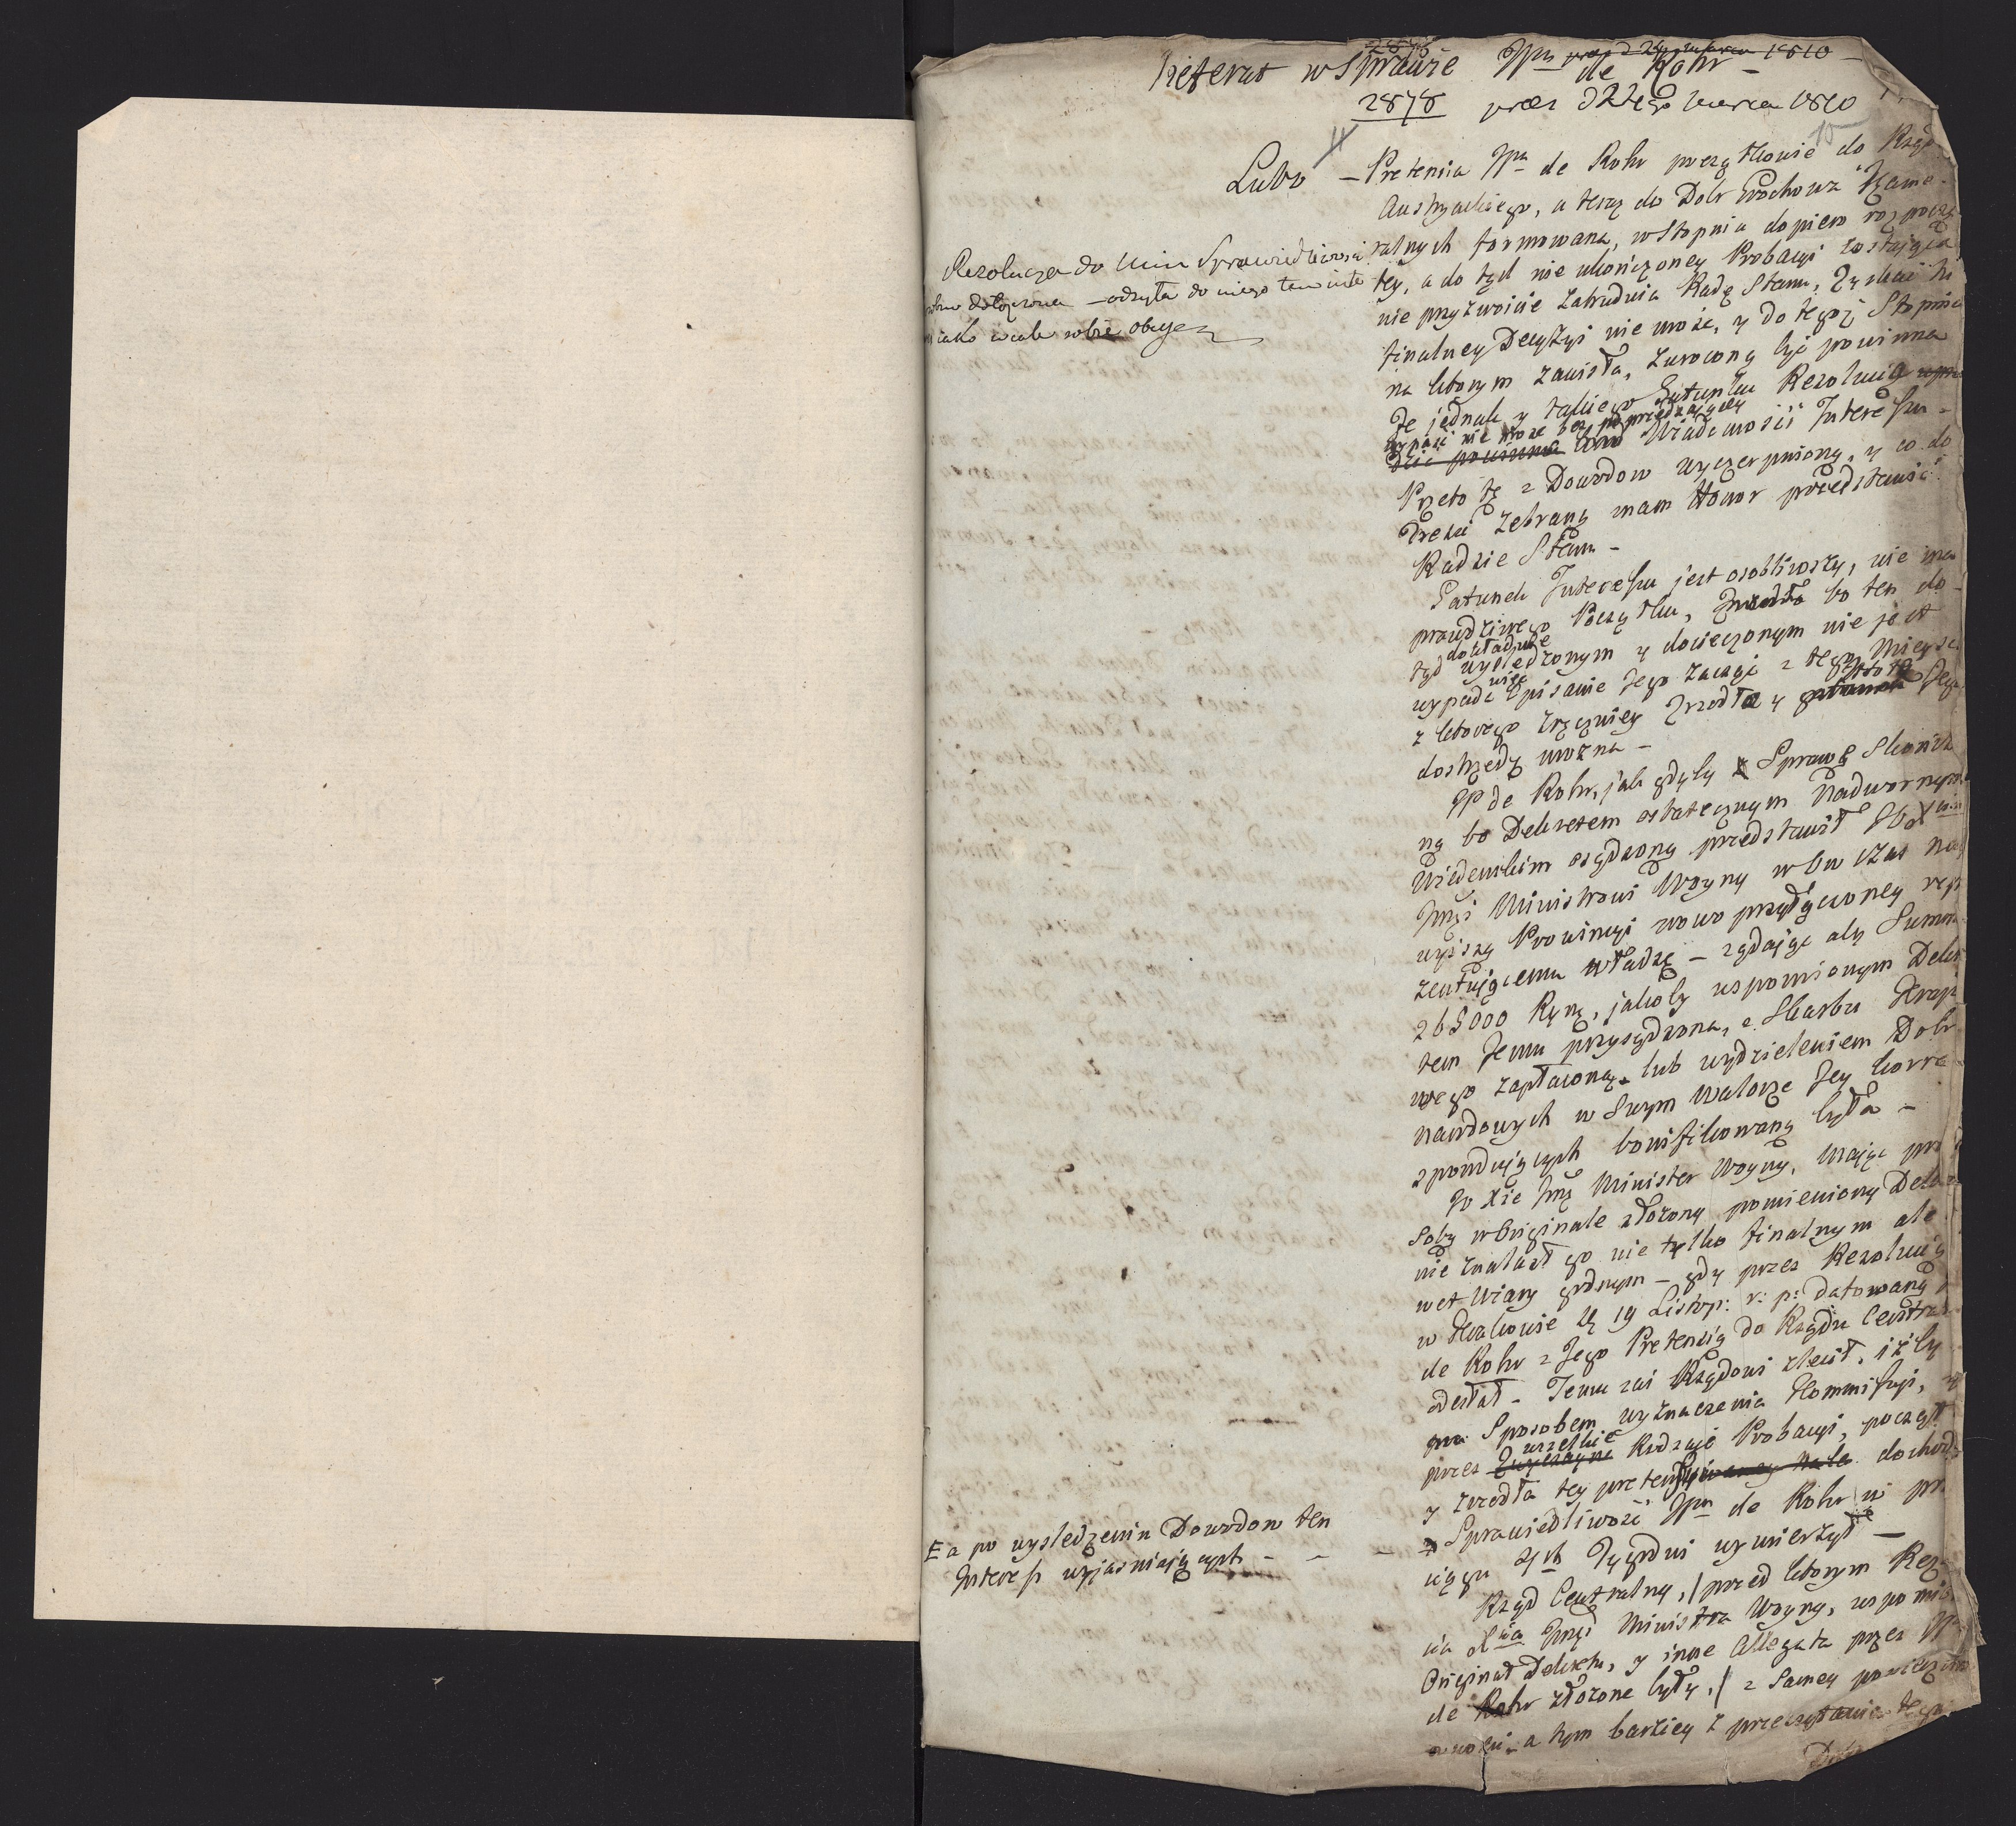 Referat w Sprawie JPn de Rohr
2878 prez d 24go Marca 1810
Lubo – Pretensia JPa de Rohr początkowie do Rządu
Austryackiego, a teraz do Dobr Grochowa Kame-
ralnych formowana, w Stopniu dopiero rozpoczę-
tey, a do tąd nie ukończoney Probacyi zostająca
nie przyzwoicie zatrudnia Radę Stanu, Zyskać tu
finalney Decyzyi nie może, y do tegoż Stopnia
na ktorym zawisła, zwroconą być powinna
Że jednak y takiego Gatunku Rezolucia
wypaść nie może bez poprzedzaiącey
Wiadomości Interessu –
Przeto tę z Dowodow wyczerpnioną, y co do
Treści zebraną mam Honor przedstawić
Radzie Stanu –
Gatunek Interessu jest osobliwszy, nie ma
prawdziwego Początku, bo ten do
tąd dokładnie wyśledzonym y docieczonym nie jest
wypada więc Opisanie Jego zacząć z tego Mieysca
z ktorego zręczniey Zrzodła y Istotę Jego
dostrzedz można –
JP de Rohr, jak gdyby Sprawę Skończo
ną bo Dekretem ostatecznym Nadwornym
Wiedeńskim osądzoną przedstawił
Ministrowi Woyny w ow Czas Nay
wyższą Prowincyi nowo przyłączoney repre
zentującemu władzę – rządając aby Summa
265000 Ryng, jakoby wspomionym Dekre
tem Jemu przysądzona, z Skarbu Krajo
wego zapłaconą, lub wydzieleniem Dobr
Narodowych w Swym Walorze Jey korre
spondujących bonifikowaną była –
JO Xże Jmć Minister Woyny, mając przed
Sobą w Originale złożony pomieniony Dekret
nie znalazł go nie tylko finalnym ale
wet Wiary godnym – gdy przez Rezolucią
w Krakowie d. 19 Listop: r: p: datowaną
de Rohr z Jego Pretensią do Rządu Centraln
odesłał – Temu zaś Rządowi zlecił, iżby
Sposobem wyznaczenia Kommissyi,
przez wszelkie Rodzaje Probacyi, początk
y zrzodła tey pretensyi dochodz
Sprawiedliwość JPn de Rohr w prze
ciągu 2ch Tygodni wymierzył –
Rząd Centralny, / przed ktorym Rezolu
cia Xcia Jmci Ministra Woyny, wspomnio
Originał Dekretu, y inne Allegata przez JPa
de Rohr złożone były, / z Samey powierzcho
wności a tym barziey z przeczytania tego
Rezolucya do Min Sprawiedliwości
dołączona – odsyła do niego ten inte
jako wcale sobie obcy
E a po wysledzeniu Dowodow ten
Interess wyjasniających –